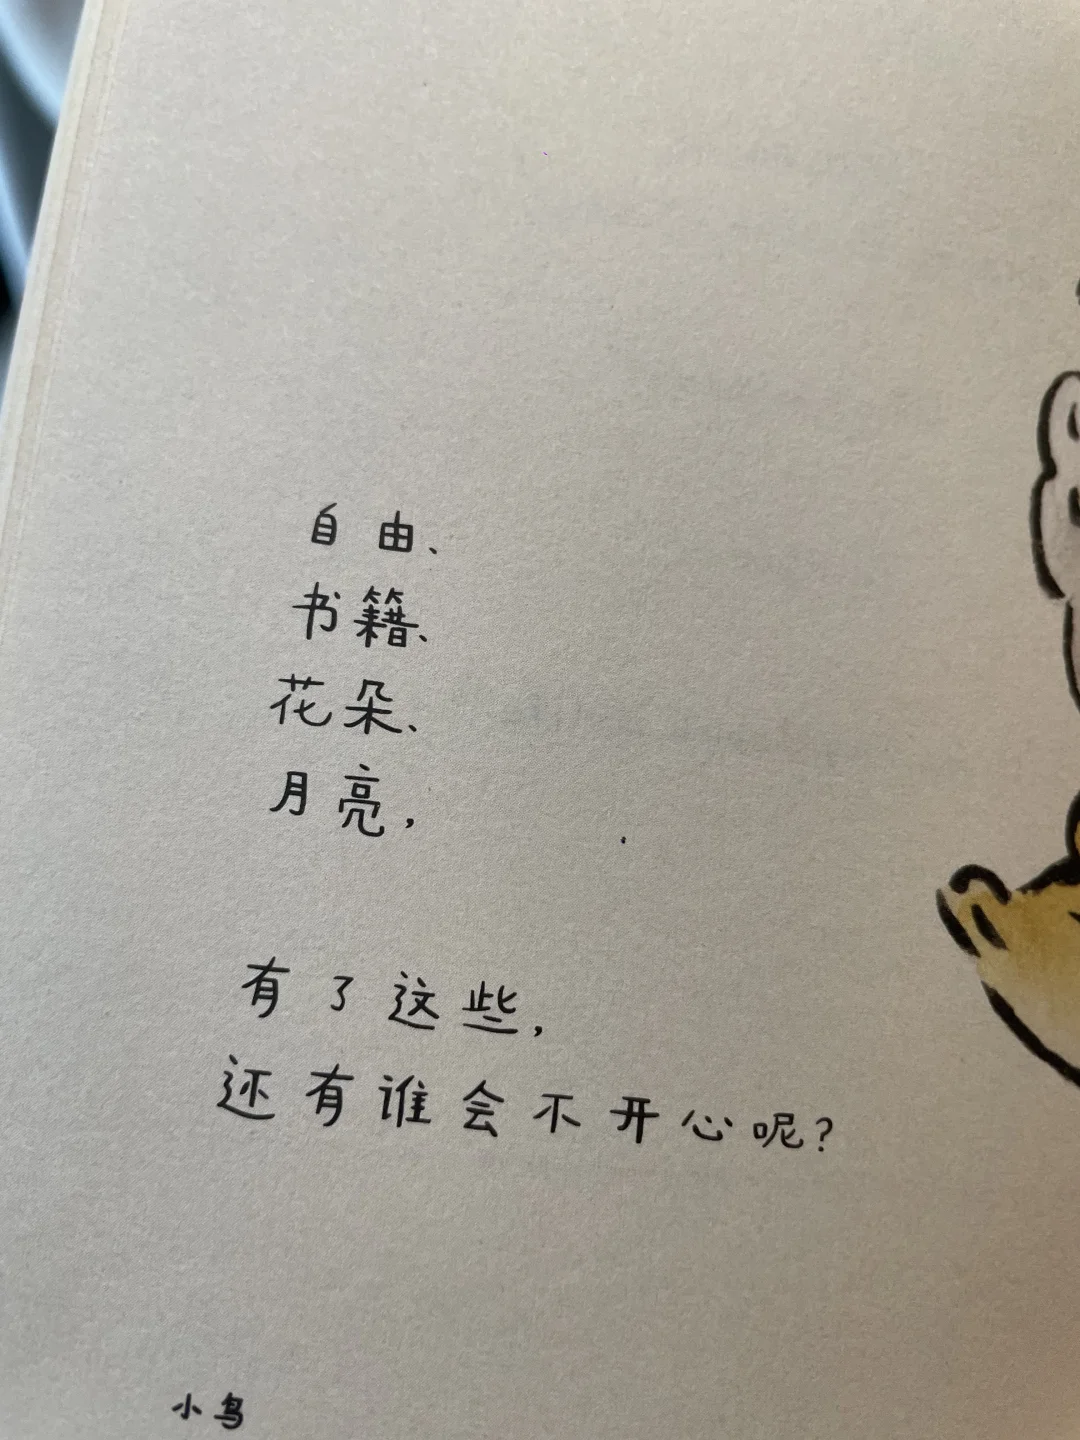 自由、
书籍、
花朵、
月亮，
有了这些，
还有谁会不开心呢？
小鸟